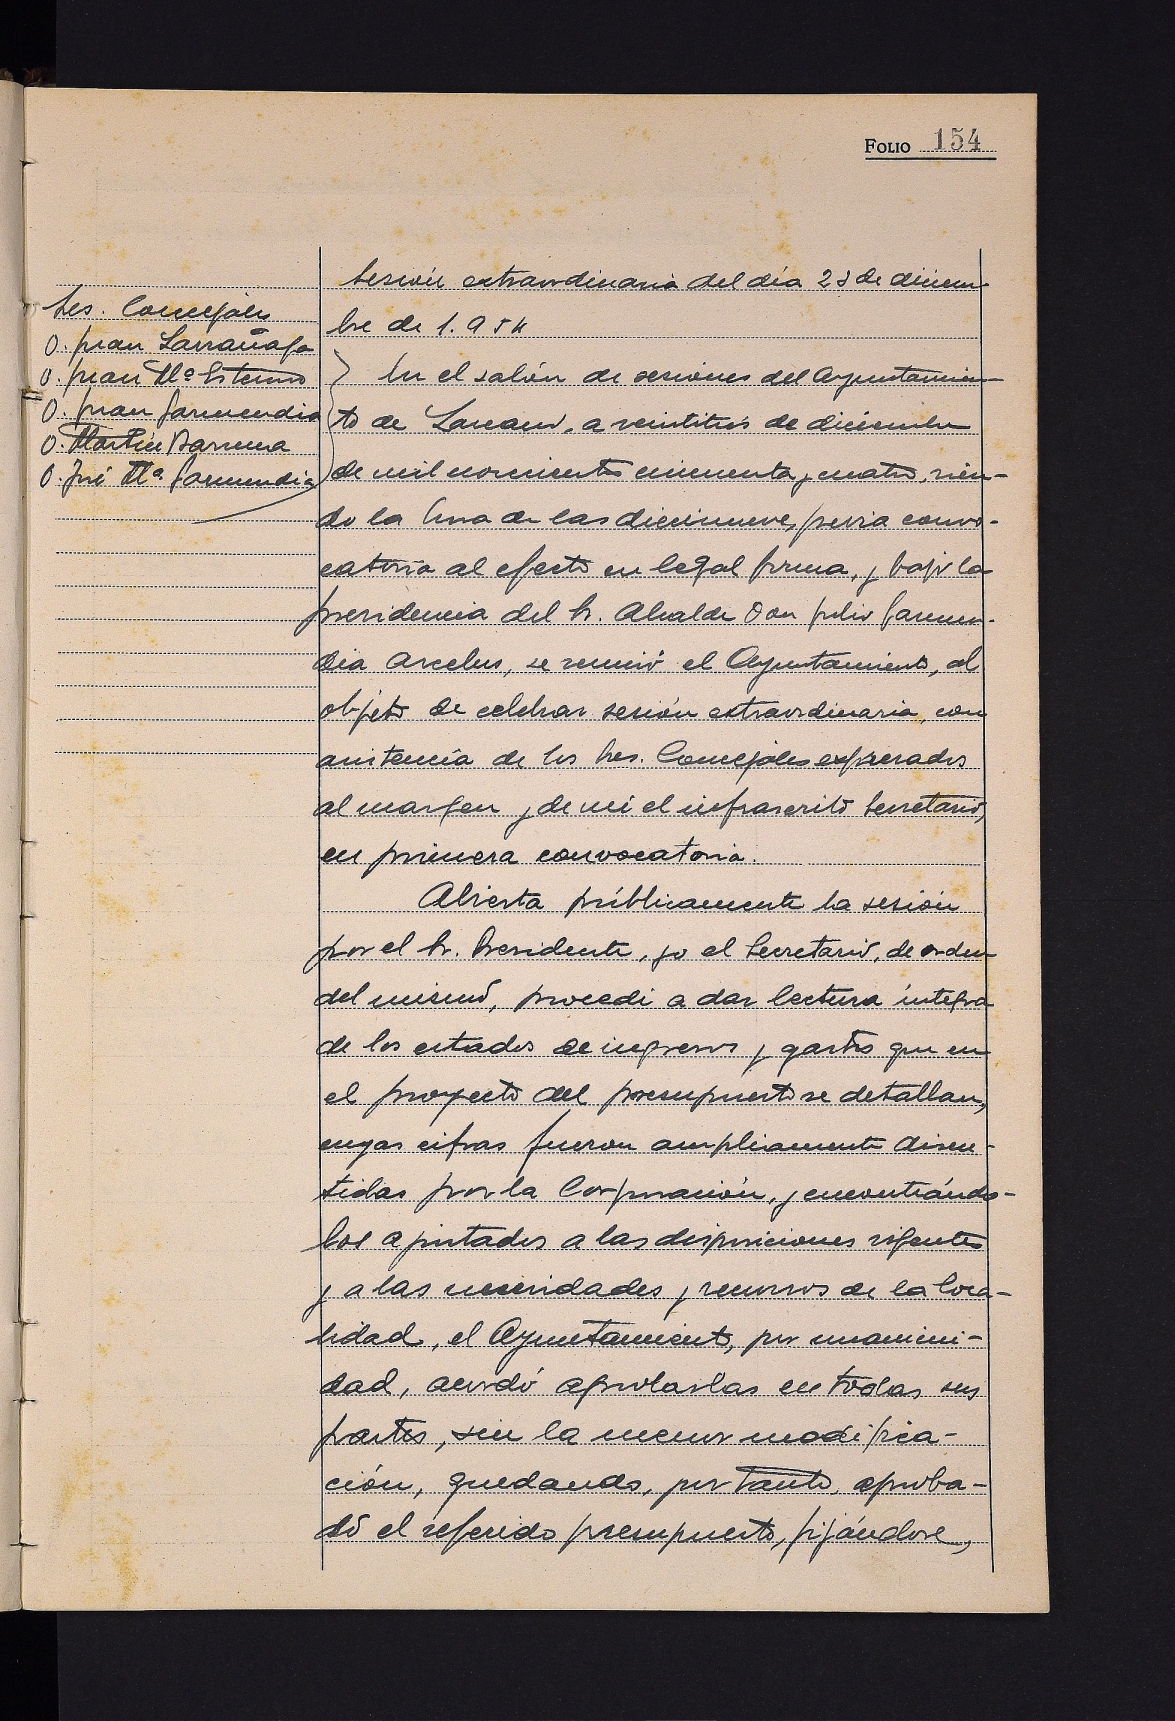 FOLIO 154
Sesión extraordinaria del día 23 de diciem-
bre de 1.954
Sres. Concejales
D. Juan Larrañaga
D. Juan Mª
D. Juan Garmendia
D. Martín Barrena
D. José Mª Garmendia
En el salón de sesiones del Ayuntamien-
to de Lazcano, a veintitrés de diciembre
de mil novecientos cincuenta y cuatro, sien-
do la hora de las diecinueve, previa convo-
catoria al efecto en legal forma, y bajo la
presidencia del Sr. Alcalde Don Julio Garmen-
dia Arcelus, se reunió el Ayuntamiento, al
objeto de celebrar sesión extraordinaria, con
asistencia de los Sres. Concejales expresados
al margen y de mí el infrascrito Secretario,
en primera convocatoria.
Abierta públicamente la sesión
por el Sr. Presidente, yo el Secretario, de orden
del mismo, procedí a dar lectura íntegra
de los estados de ingresos y gastos que en
el proyecto del presupuesto se detallan,
cuyas cifras fueron ampliamente discu-
tidas por la Corporación, y encontrándo-
los ajustados a las disposiciones vigentes
y a las necesidades y recursos de la loca-
lidad, el Ayuntamiento, por unanimi-
dad, acordó aprobarlas en todas sus
partes, sin la menor modifica-
ción, quedando, por tanto, aproba-
do el referido presupuesto, fijándose,